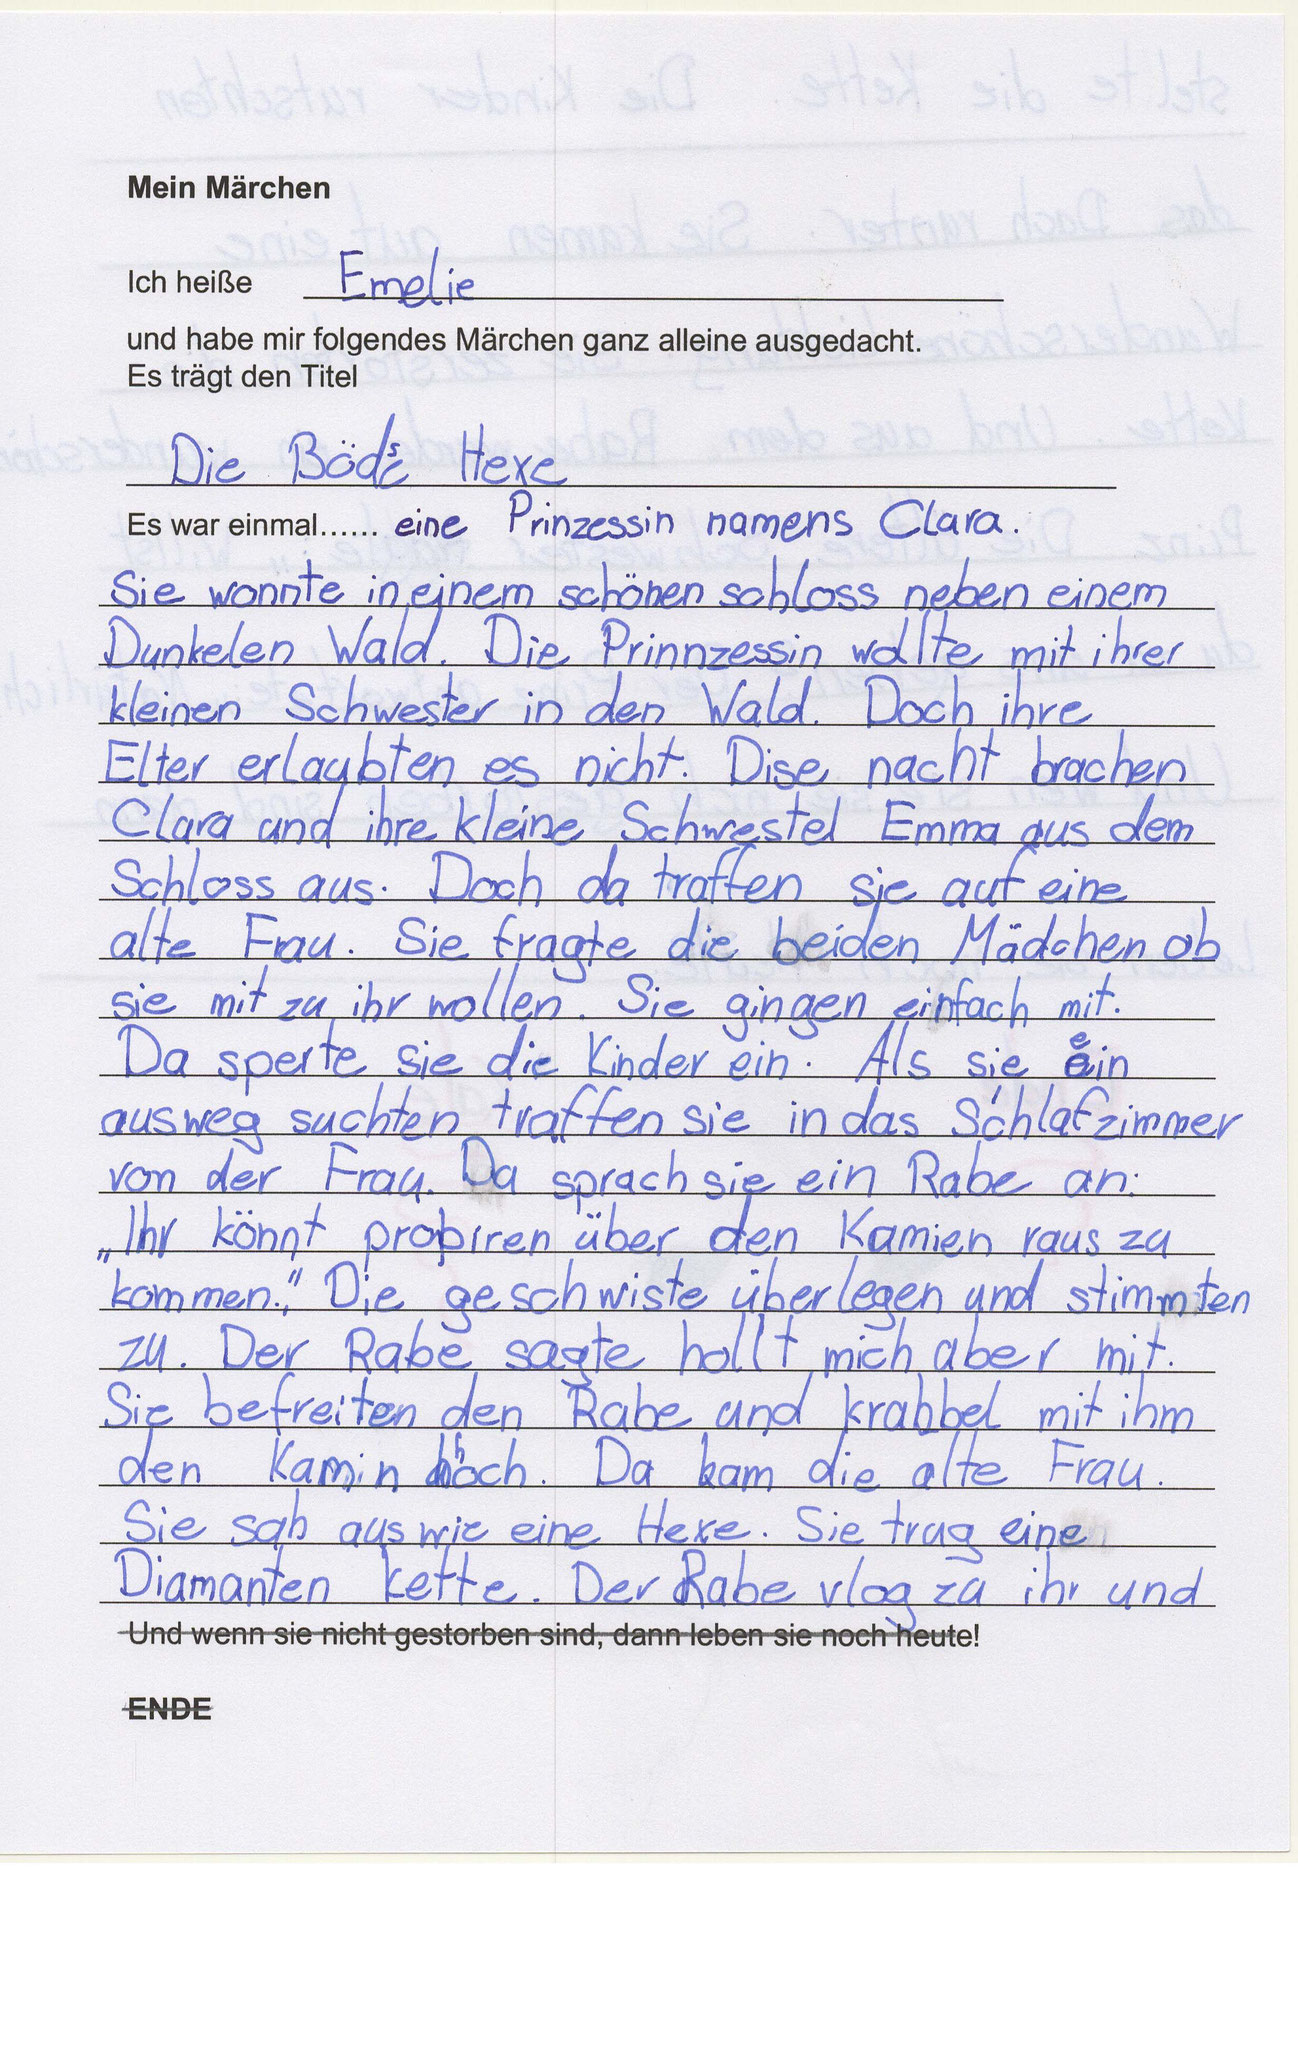 Mein Märchen
Ich heiße Emelie
und habe mir folgendes Märchen ganz alleine ausgedacht.
Es trägt den Titel
Die Böse Hexe
Es war einmal...... eine Prinzessin namens Clara.
Sie wonnte in einem schönen schloss neben einem
Dunkelen Wald. Die Prinnzessin wollte mit ihrer
kleinen Schwester in den Wald. Doch ihre
Elter erlaubten es nicht. Dise nacht brachen
Clara und ihre kleine Schwestel Emma aus dem
Schloss aus. Doch da traffen sie auf eine
alte Frau. Sie fragte die beiden Mädchen ob
sie mit zu ihr wollen. Sie gingen einfach mit.
Da sperte sie die Kinder ein. Als sie ein
ausweg suchten traffen sie in das Schlafzimmer
von der Frau. Da sprach sie ein Rabe an:
„Ihr könnt probiren über den Kamien raus zu
kommen." Die geschwiste überlegen und stimmten
zu. Der Rabe sagte hollt mich aber mit.
Sie befreiten den Rabe und krabbel mit ihm
den Kamin hoch. Da kam die alte Frau.
Sie sah aus wie eine Hexe. Sie trug eine
Diamanten kette. Der Rabe vlog zu ihr und
Und wenn sie nicht gestorben sind, dann leben sie noch heute!
ENDE